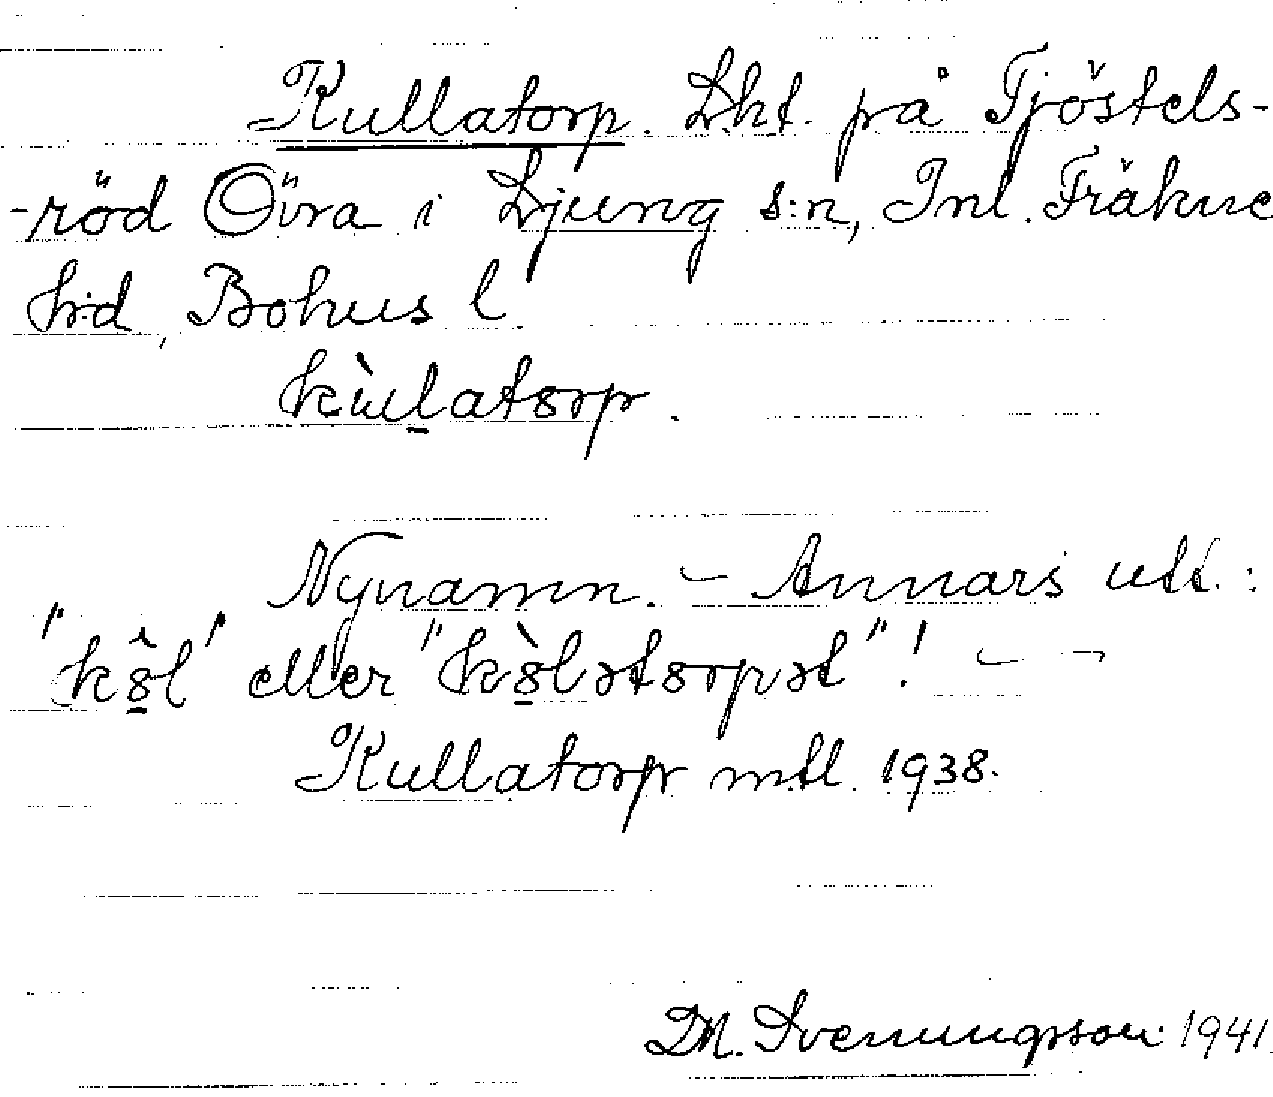 Kullatorp. Lht. på Tjöstels-
-röd Övra i Ljung s:n, Inl. Fräkne
h:d, Bohus l.
kùlatorp.
Nynamn. – Annars utt.:
"kôl" eller "kòlətorpət"! – –
Kullatorp mtl. 1938.
D.M. Svenungsson 1941.